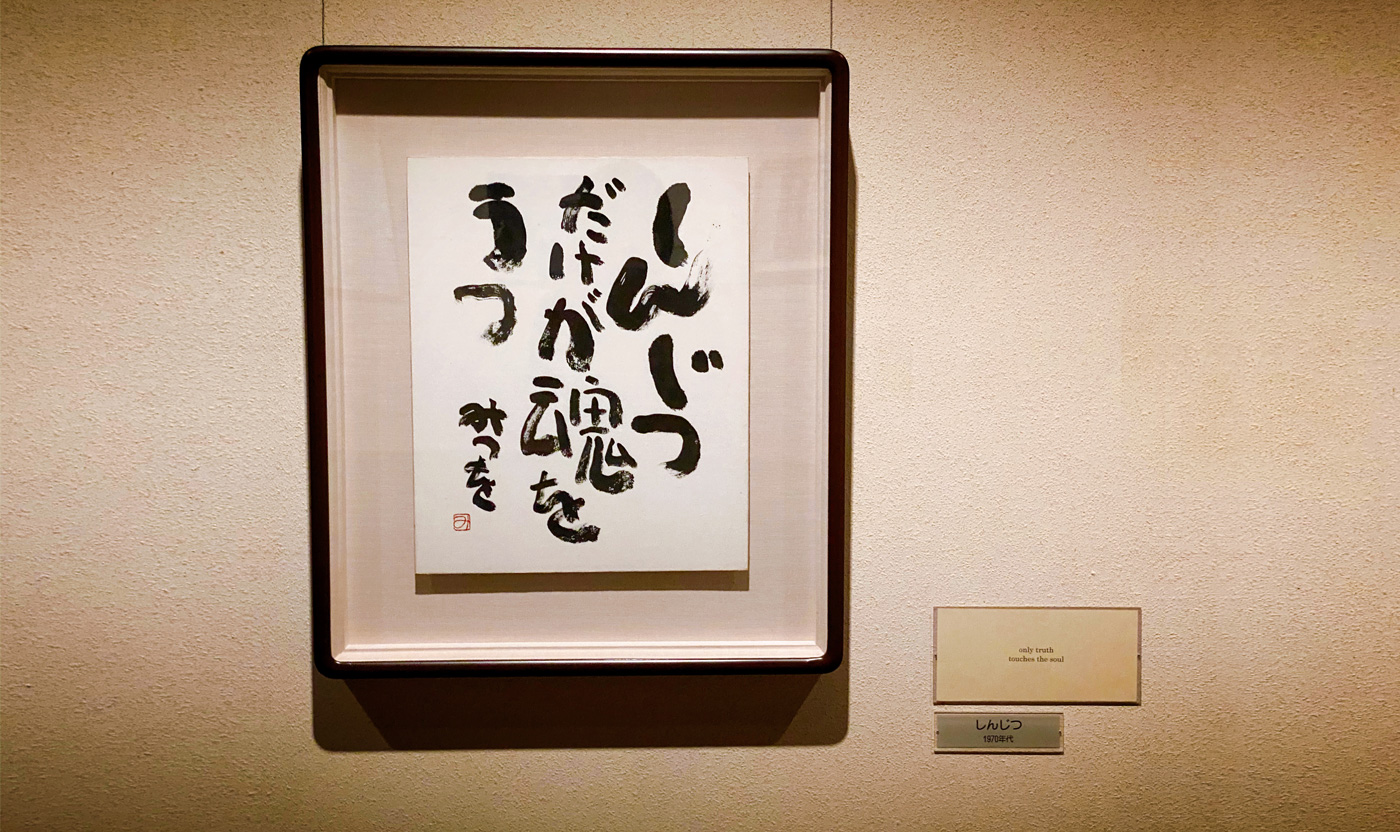 しんじつ
だけが魂を
うつ
みつを
み
only truth
touches the soul
しんじつ
1970年代